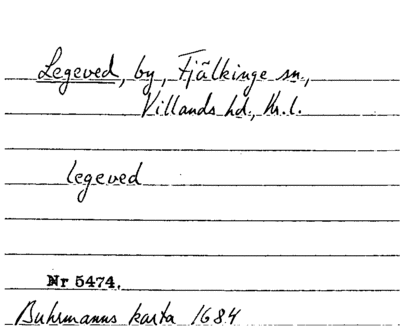 Legeved, by, Fjälkinge sn.,
Villands hd., Kr.l.
legeved
Nr 5474.
Buhrmanns karta 1684